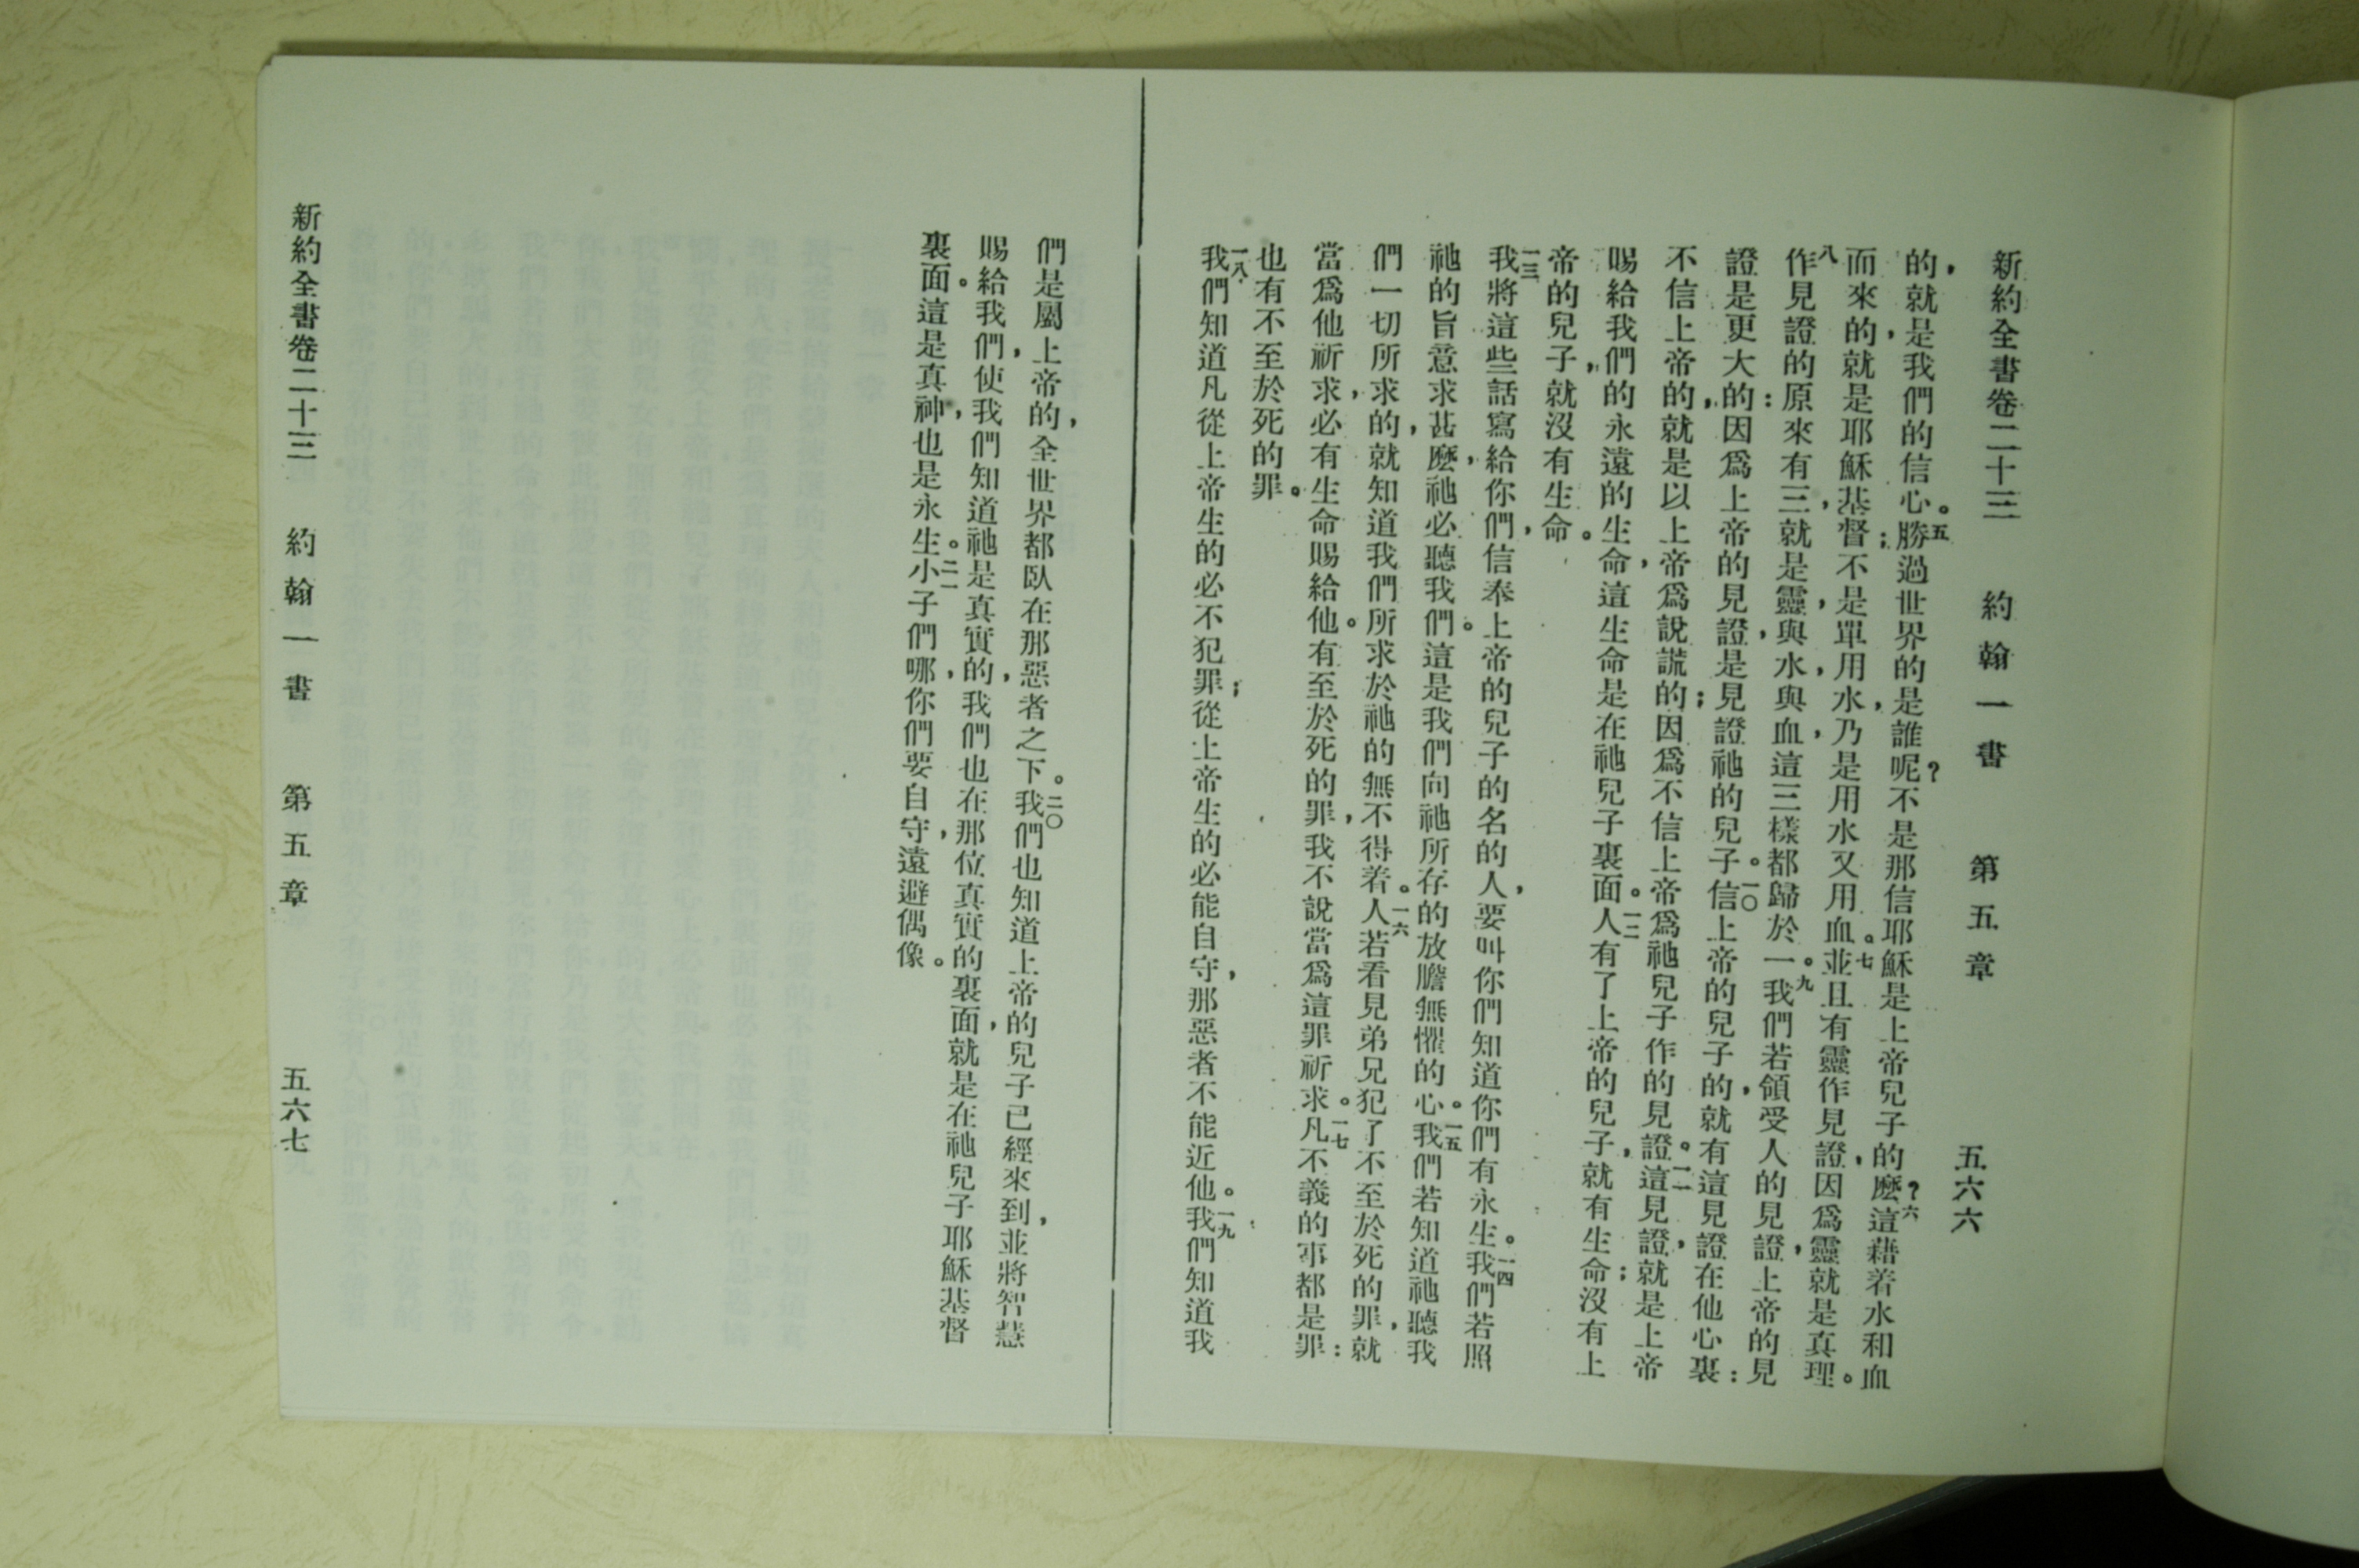 新約全書卷二十三 約翰一書 第五章 五六六
的，就是我們的信心。五勝過世界的是誰呢？不是那信耶穌是上帝兒子的麼？六這藉着水和血
而來的，就是耶穌基督；不是單用水，乃是用水又用血。七並且有靈作見證，因爲靈就是真理。
八作見證的：原來有三，就是靈，與水，與血，這三樣都歸於一。九我們若領受人的見證，上帝的見
證是更大的：因爲上帝的見證，是見證祂的兒子。一〇信上帝的兒子的，就有這見證在他心裏：
不信上帝的，就是以上帝爲說謊的；因爲不信上帝爲祂兒子作的見證。一一這見證，就是上帝
賜給我們的永遠的生命，這生命是在祂兒子裏面。一二人有了上帝的兒子，就有生命；沒有上
帝的兒子，就沒有生命。
一三我將這些話寫給你們，信奉上帝的兒子的名的人，要叫你們知道你們有永生。一四我們若照
祂的旨意求甚麼，祂必聽我們。這是我們向祂所存的放膽無懼的心。一五我們若知道祂聽我
們一切所求的，就知道我們所求於祂的無不得着。一六人若看見弟兄犯了不至於死的罪，就
當爲他祈求，必有生命賜給他。有至於死的罪，我不說當爲這罪祈求。一七凡不義的事都是罪：
也有不至於死的罪。
一八我們知道凡從上帝生的必不犯罪；從上帝生的必能自守，那惡者不能近他。一九我們知道我
們是屬上帝的，全世界都臥在那惡者之下。二〇我們也知道上帝的兒子已經來到，並將智慧
賜給我們，使我們知道祂是真實的，我們也在那位真實的裏面，就是在祂兒子耶穌基督
裏面。這是真神，也是永生。二一小子們哪，你們要自守，遠避偶像。
新約全書卷二十三 約翰一書 第五章 五六七